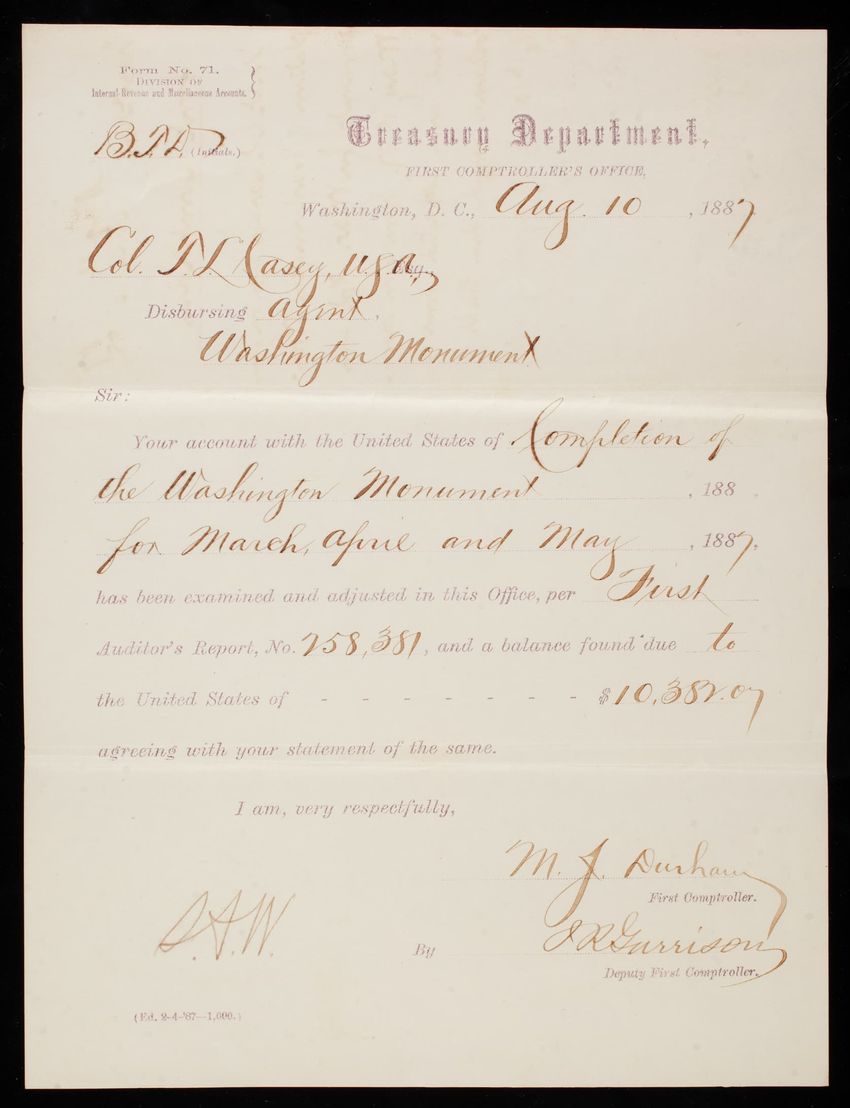 Form No. 71.
Division of
Internal-Revenue and Miscellaneous Accounts.
(Initials.)
Treasury Department,
FIRST COMPTROLLER'S OFFICE,
Washington, D. C., Aug. 10, 1887
Col. T. L. Casey, U.S.A., Esq.,
Disbursing Agent,
Washington Monument
Sir:
Your account with the United States of Completion of
the Washington Monument, 188 .
for March, April and May, 1887,
has been examined and adjusted in this Office, per First
Auditor's Report, No. 258,381, and a balance found due to
the United States of - - - - - - - $10,382.07
agreeing with your statement of the same.
I am, very respectfully,
M. J. Durham
First Comptroller.
S.A.W. By J R Garrison
Deputy First Comptroller.
(Ed. 2-4-'87—1,000.)